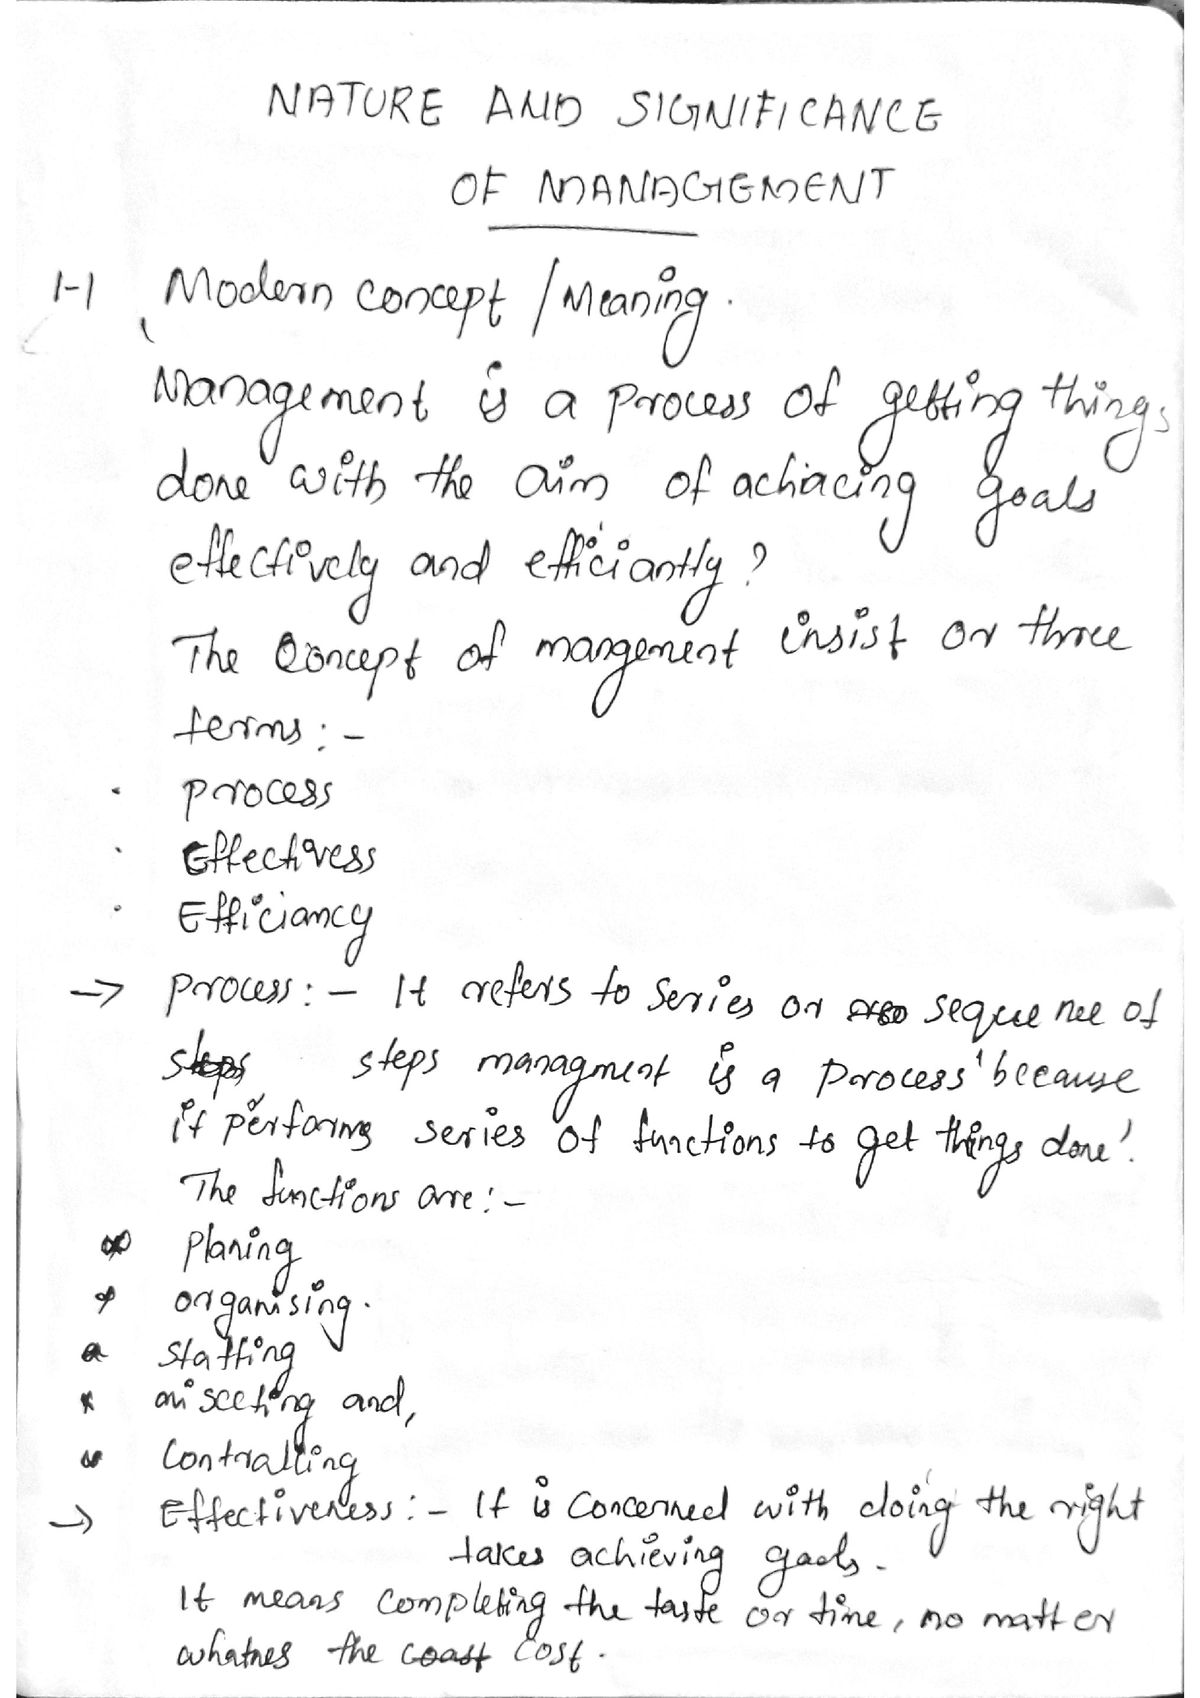 NATURE AND SIGNIFICANCE
OF MANAGEMENT
1-1 Modern concept / Meaning.
Management is a process of getting things
done with the aim of achiacing goals
effectively and efficiantly?
The Concept of mangement insist on three
terms :-
· process
· Effectivess
· Efficiancy
→ process :- It refers to series or sequence of
steps steps managment is a process 'because
it performs series of functions to get things done'.
The functions are :-
Planing
organising.
staffing
and,
Contralling
→ Effectiveness :- It is concerned with doing the right
takes achieving goals.
It means completing the taste on time, no matter
the coast cost.